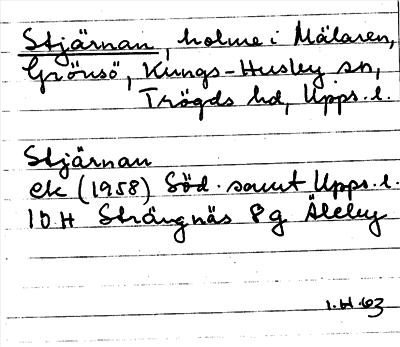 Stjärnan, holme i Mälaren,
Grönsö, Kungs-Husby sn,
Trögds hd, Upps. l.
Stjärnan
ek (1958) Söd. samt Upps. l.
10 H Strängnäs 8g Äleby
1.H.63